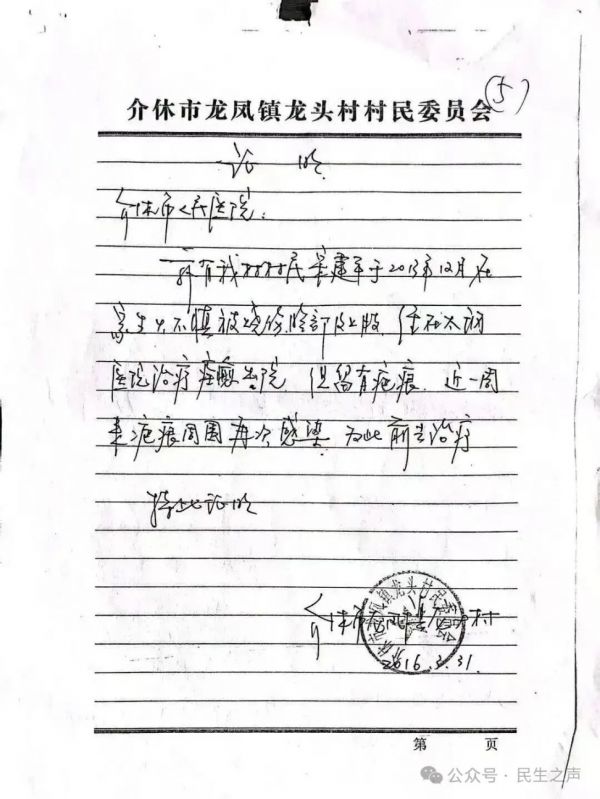 (5)
介休市龙凤镇龙头村村民委员会
证 明
介休市人民医院:
兹有我村村民 建军于2013年12月在
家生火不慎被烧伤脸部及上肢. 住在太钢
医院治疗痊愈出院 但留有疤痕. 近一周
来疤痕周围再次感染. 为此前去治疗
特此证明
介休市龙凤镇龙头村
介休市龙凤镇龙头村民委员会
2016.3.31.
第 页
公众号·民生之声